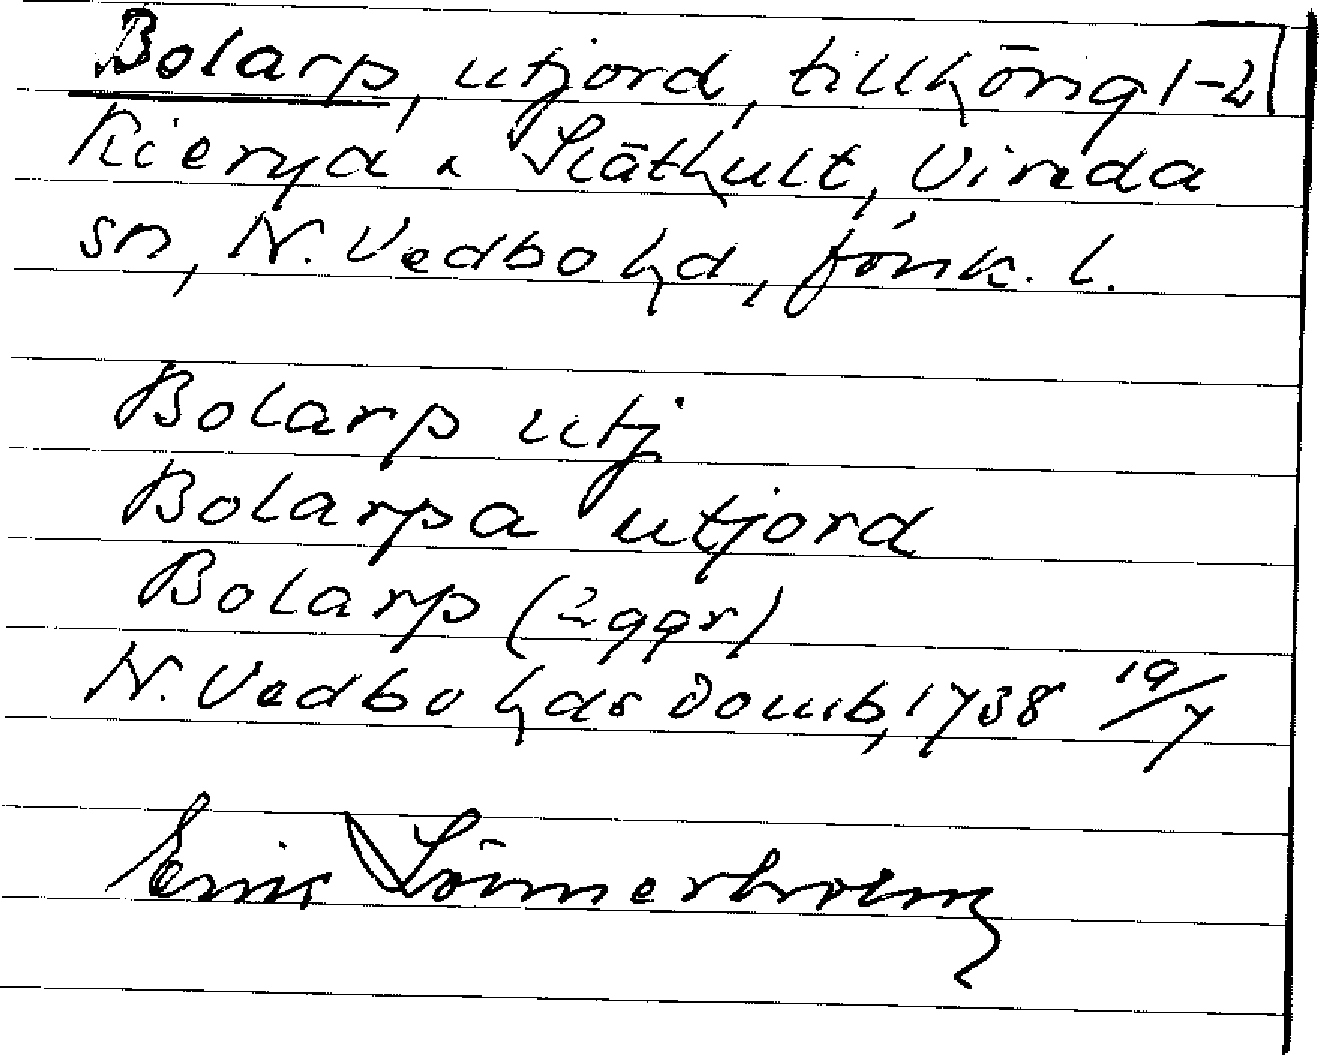 Bolarp, utjord, tillhörig 1-2
Kieryd & Släthult, Vireda
sn, N. Vedbo hd, Jönk. l.
Bolarp utj
Bolarpa utjord
Bolarp (2 ggr)
N. Vedbo hds domb, 1738 19/7
Eric Sömmerholm